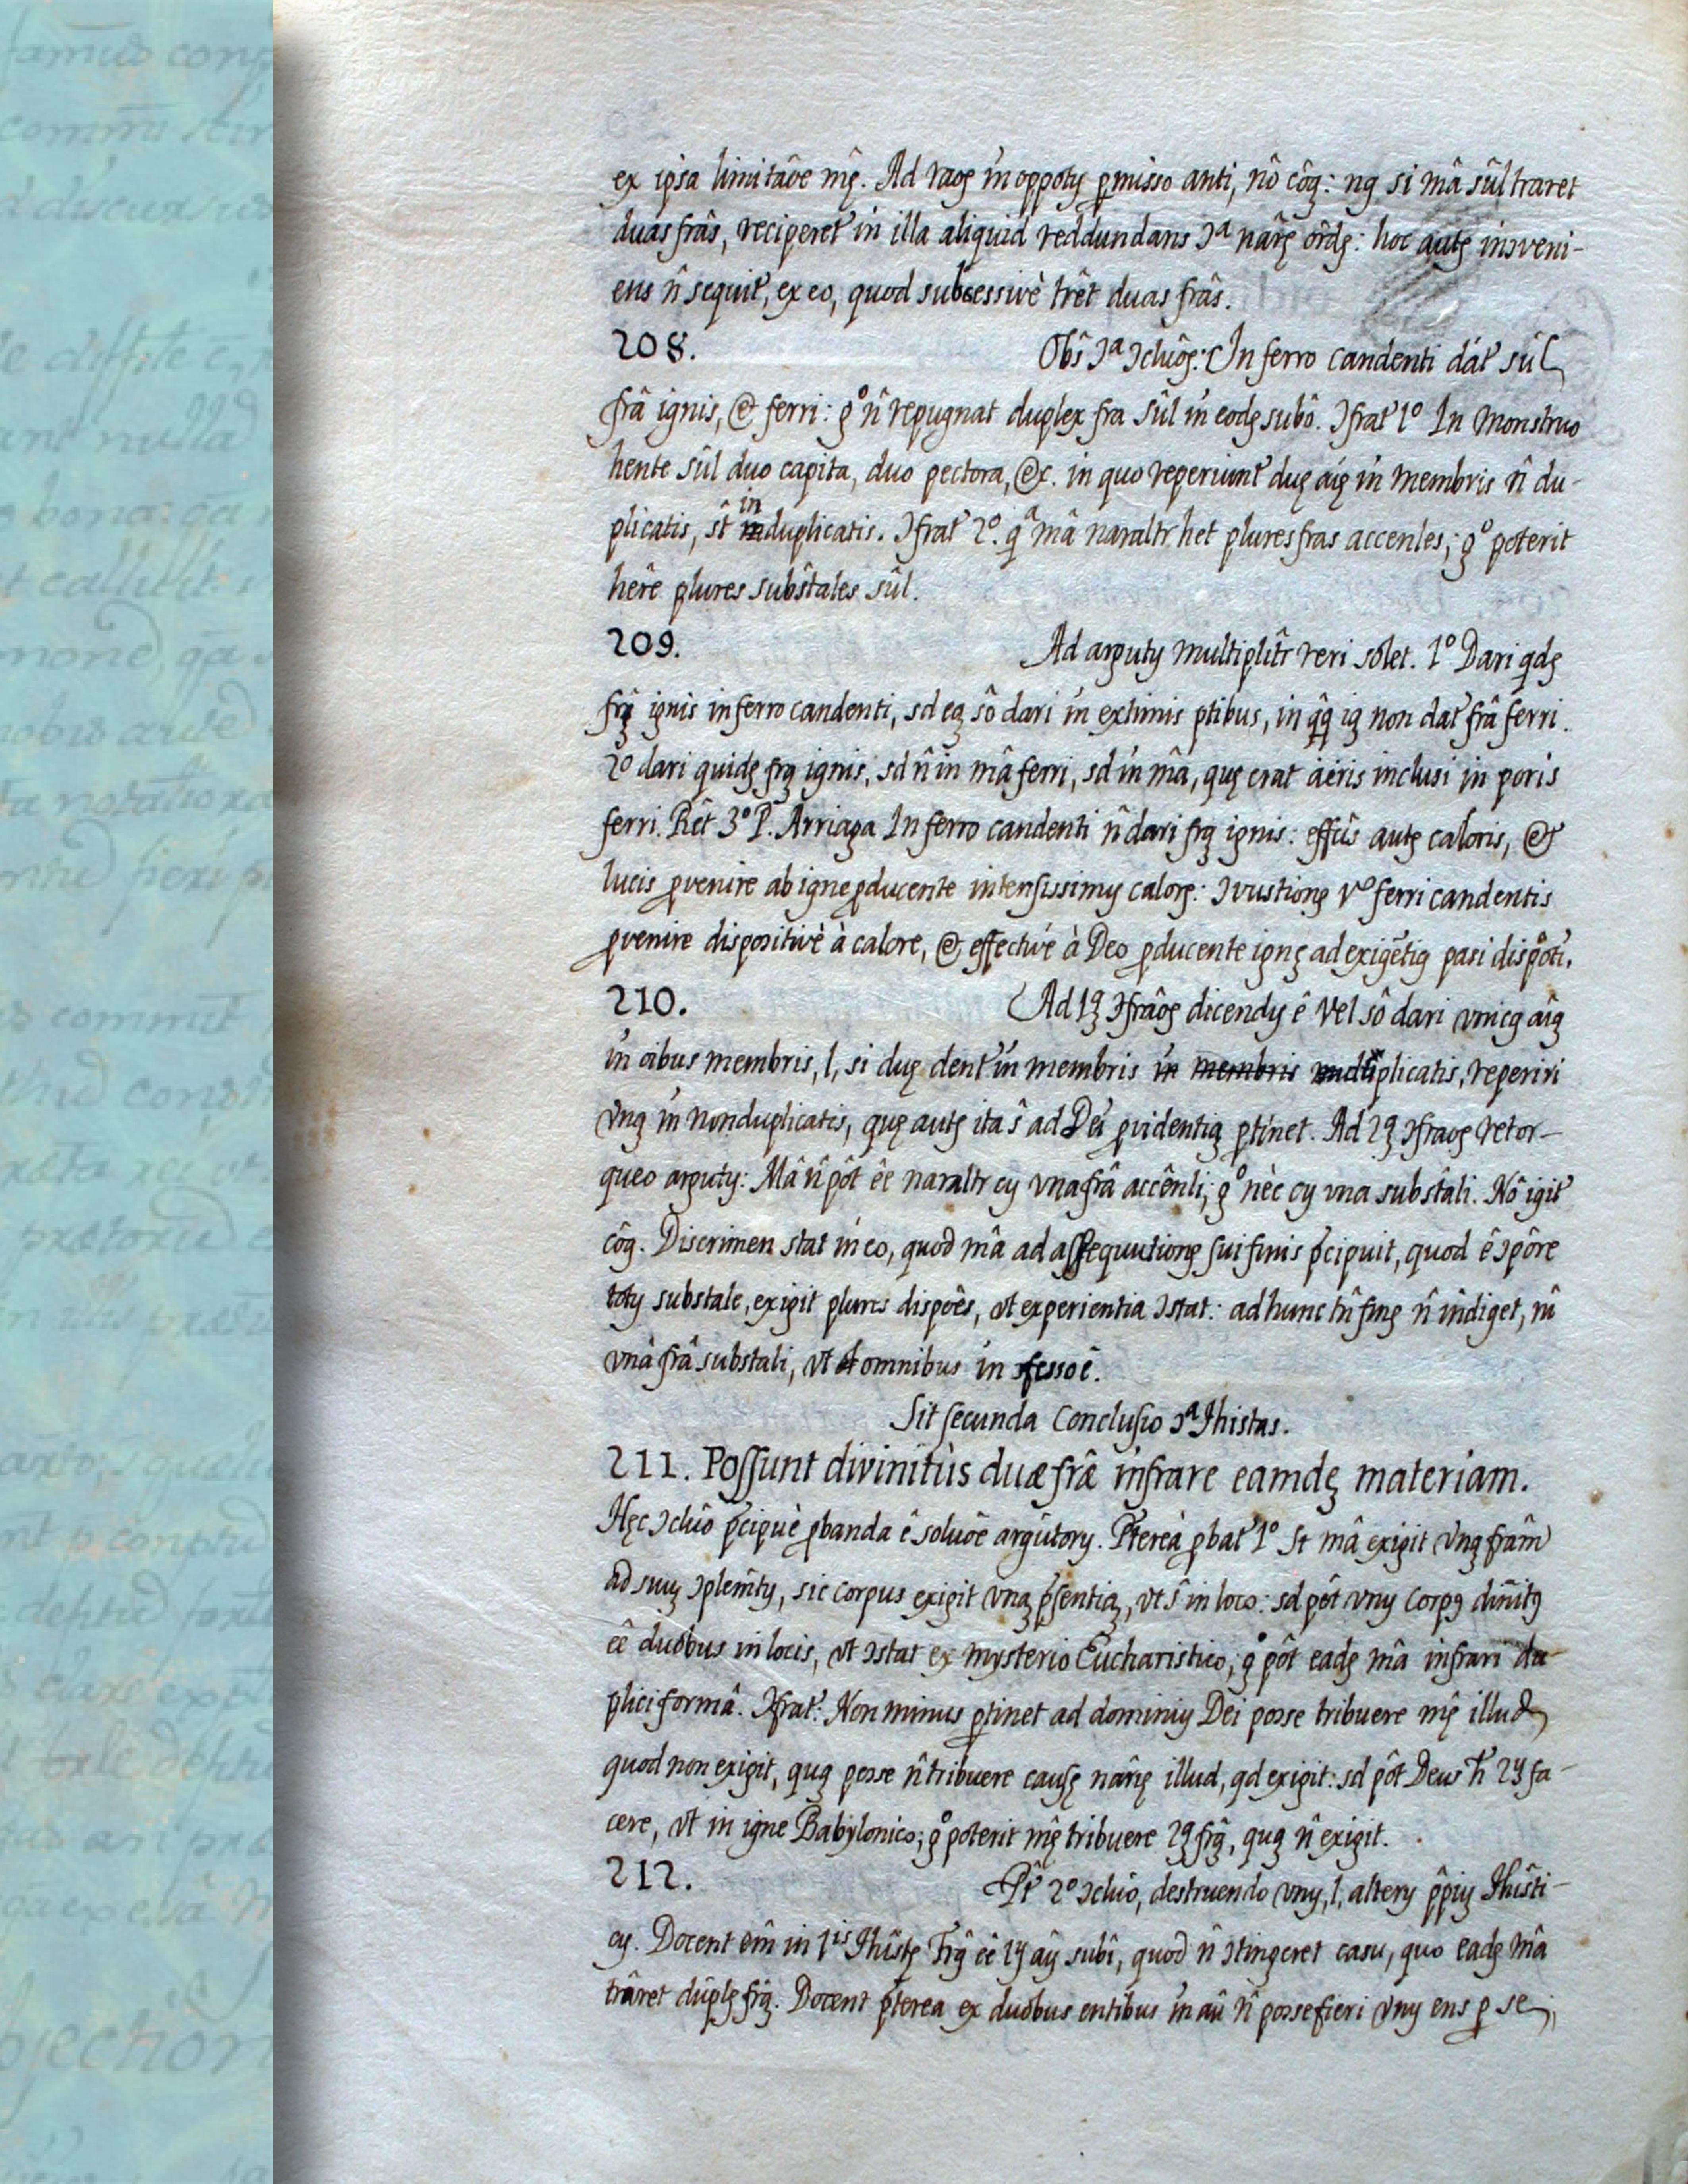 ex ipsa limitâōe mę̂. Ad raoȩ in oppoty pmisso anti, nô côg: nȩ si mâ sûl traret
duas frâs, reciperet̃ in illa aliquid reddundans ɔª nârȩ ôrdȩ: hoc autȩ inɔveni-
ens n̂ sequit̃, ex eo, quod subcessivè trêt duas frâs.
208. Obŝ ɔª ɔcluôȩ: In ferro candenti dat̃ sûl
frâ ignis, & ferri: gº n̂ repugnat duplex fra sûl in eodȩ subô. ɔfrat̃ 1º In Monstruo
hente sûl duo capita, duo pectora, &c. in quo reperiunt̃ duȩ aiȩ in membris n̂ du-
plicatis, st̂ in induplicatis. ɔfrat̃ 2º. qª mâ naraltr het plures fras accenles; gº poterit
herê plures subŝtales sûl.
209. Ad arguty multiplit̂r reri solet. 1º Dari qdȩ
frȩ ignis in ferro candenti, sd eȩ sô dari in extimis ptibus, in q̂q̂ iȩ non dat̃ frâ ferri.
2º dari quidȩ frȩ ignis, sd n̂ in mâ ferri, sd in mâ, quȩ erat aëris inclusi in poris
ferri. Rêt 3º P. Arriaga In ferro candenti n̂ dari frȩ ignis: effûs autȩ caloris, &
lucis pvenire ab igne pducente intensissimy calorȩ: ɔvustionȩ vº ferri candentis
pvenire dispositivè à calore, & effectivè à Deo pducente ignȩ ad exigẽtiȩ pasi dispôti.
210. Ad 1ȩ ɔfrâôȩ dicendy ê vel sô dari vnicȩ aîȩ
in oibus membris, l, si duȩ dent̃ in membris in membris multiplicatis, reperiri
vnȩ in non duplicatis, quȩ autȩ ita ŝ ad Dei pvidentiȩ ptinet. Ad 2ȩ ɔfraoȩ retor-
queo arguty: Mâ n̂ pôt êe naraltr cy vna frâ accênli; gº nèc cy vna subŝtali. Nô igit̃
côg. Discrimen stat in eo, quod mâ ad assequutionȩ sui finis pcipuit, quod ê ɔpôre
toty substale, exigit plures dispoês, vt experientia ɔstat: ad hunc tn̂ finȩ n̂ indiget, nî
vnâ frâ substali, vt omnibus in ɔfessoê.
Sit secunda Conclusio ɔª Jhistas.
211. Possunt divinitùs duæ frâ infrare eamdȩ materiam.
Hȩc ɔcluô pcipuè pbanda ê soluôe argûtory. Pterea pbat̃ 1º St mâ exigit vnȩ frâm
ad suuȩ ɔplem̂ty, sic corpus exigit vnȩ psentiȩ, vt ŝ in loco: sd pôt vny Corpȩ divit̂ȩ
êe duobus in locis, vt ɔstat ex mysterio Eucharistico; gº pôt eadȩ mâ infrari du-
plici formâ. ɔfrat̃: Non minus ptinet ad dominiy Dei posse tribuere mȩ̂ illud
quod non exigit, quȩ posse n̂ tribuere causȩ nârȩ illud, qd exigit: sd pôt Deus h̃ 2y fa-
cere, vt in igne Babylonico; gº poterit mȩ̂ tribuere 2ȩ frȩ̂, quȩ n̂ exigit.
212. Pt̃ 2º ɔcluô, destruendo vny, l, altery p̂piy Jhisti-
cy. Docent em̂ in 1is Jhistȩ Frȩ̂ êe 1y aŷ subî, quod n̂ ɔtingeret casu, quo eadȩ mâ
trâret dûplȩ frȩ̂. Docent pterea ex duobus entibus in aû n̂ posse fieri vny ens p se,